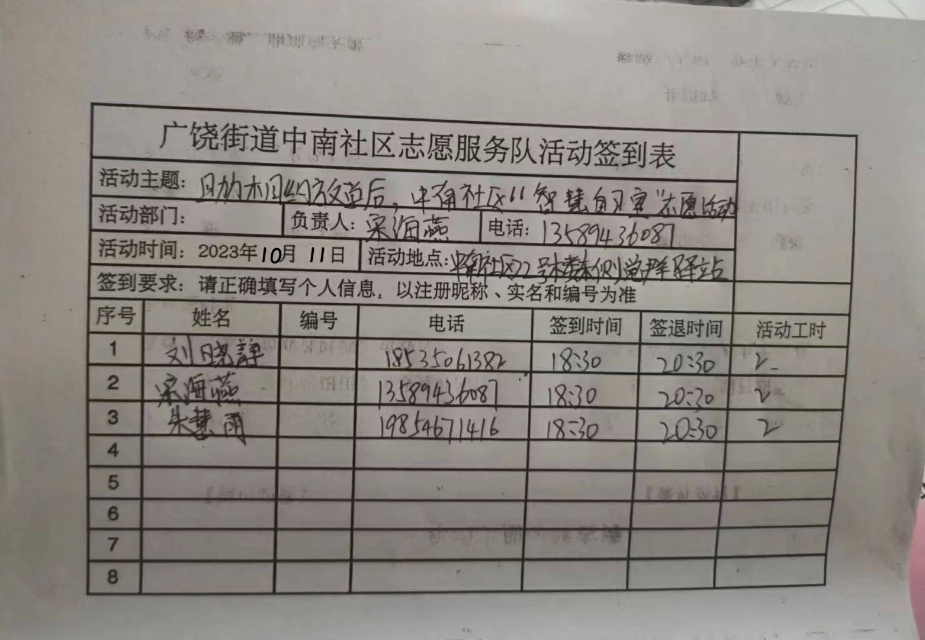 广饶街道中南社区志愿服务队活动签到表
活动主题：相约放学后，中南社区“智慧自习室”志愿活动
活动部门： 负责人：宋海燕 电话：13589436087
活动时间：2023年10月11日 活动地点：中南社区22号楼东侧党群驿站
签到要求：请正确填写个人信息，以注册昵称、实名和编号为准
序号 姓名 编号 电话 签到时间 签退时间 活动工时
1 刘晓静 18535061382 18:30 20:30 2
2 宋海燕 13589436087 18:30 20:30 2
3 朱慧雨 19854671416 18:30 20:30 2
4
5
6
7
8